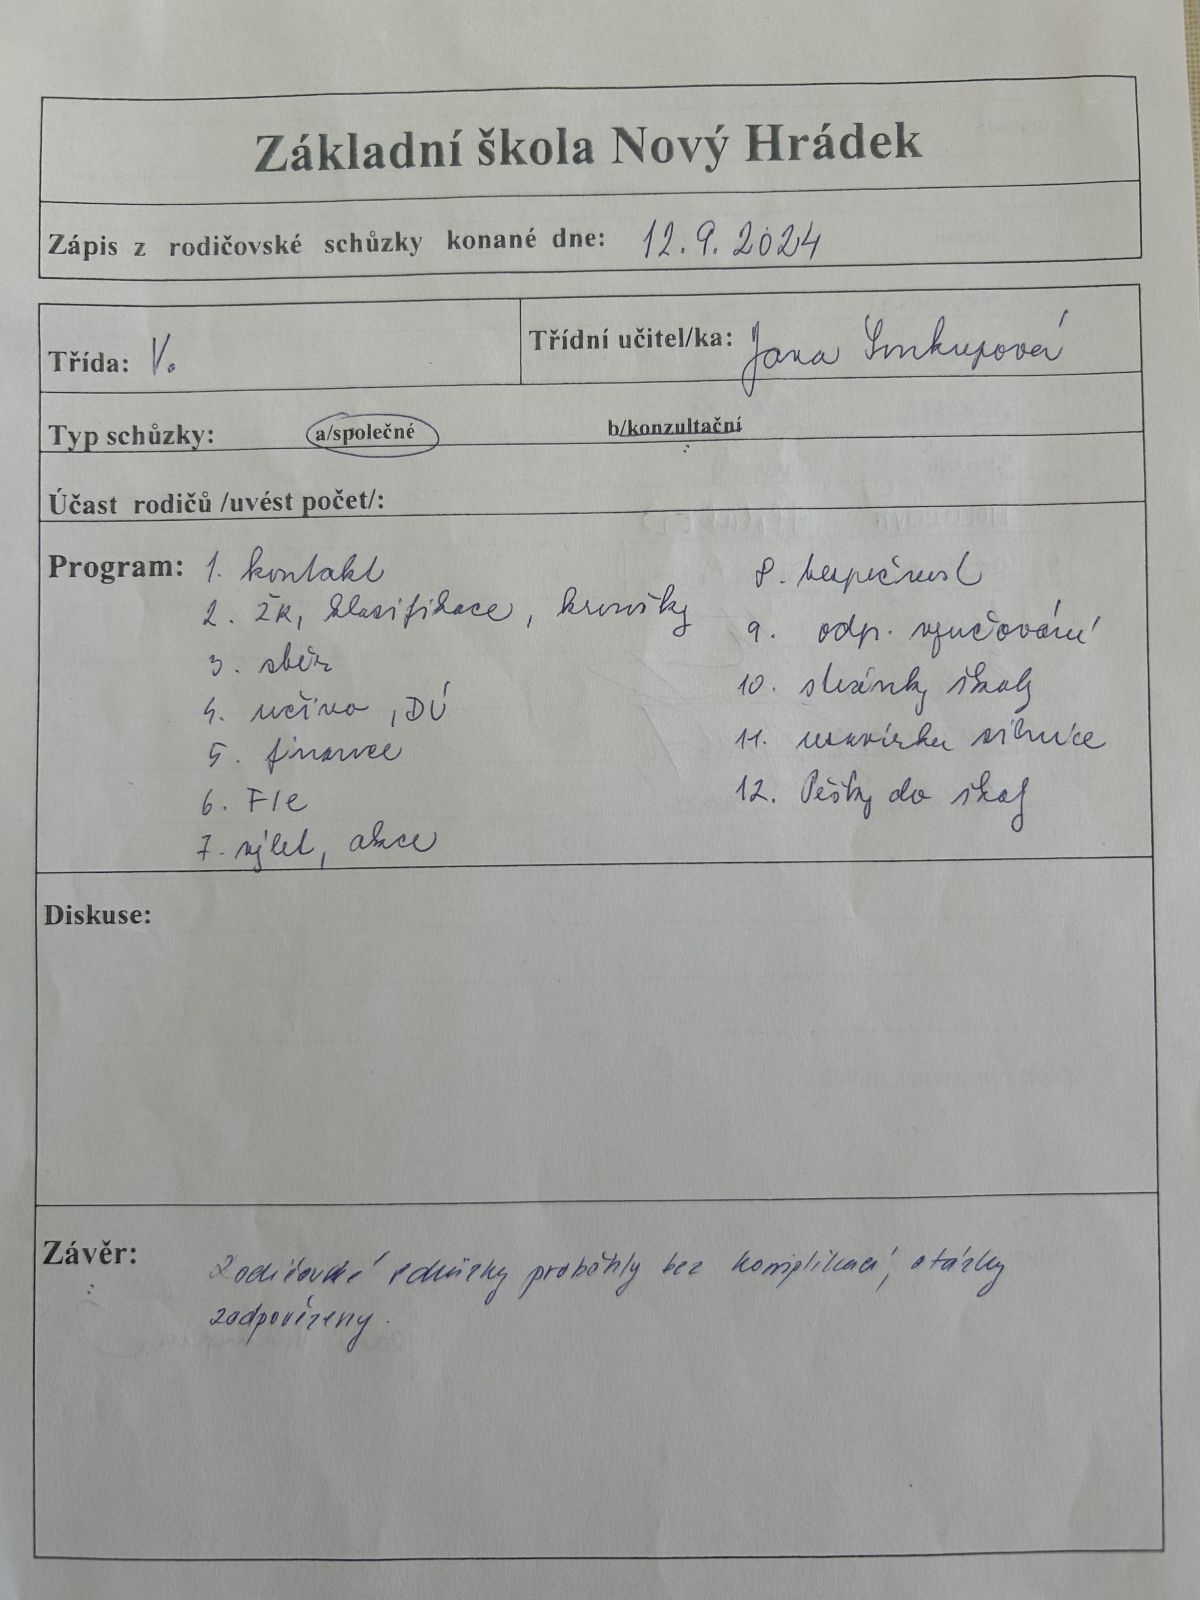 Základní škola Nový Hrádek
Zápis z rodičovské schůzky konané dne: 12.9.2024
Třída: V.
Třídní učitel/ka: Jana
Typ schůzky: a/společné b/konzultační
Účast rodičů /uvést počet/:
Program: 1. kontakt
2. ŽK, klasifikace, kroužky
3. sběr
4. učivo, DÚ
5. finance
6. FIE
7. výlet, akce
8. bezpečnost
9. odp. vyučování
10. stránky školy
11. uzavírka silnice
12. Pěšky do školy
Diskuse:
Závěr: Rodičovské schůzky proběhly bez komplikací, otázky
zodpovězeny.